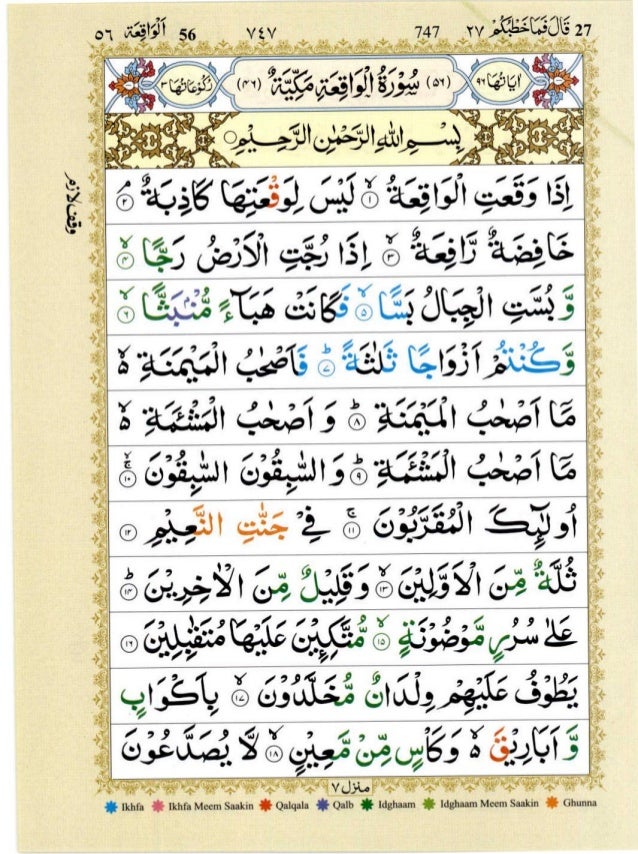 27 قَالَ فَمَا خَطْبُكُمْ ٢٧ 747 ٧٤٧ 56 اَلْوَاقِعَة ٥٦
اٰيَاتُهَا ٩٦ (٥٦) سُوْرَةُ الْوَاقِعَةِ مَكِّيَّةٌ (٤٦) رُكُوْعَاتُهَا ٣
بِسْمِ اللهِ الرَّحْمٰنِ الرَّحِيْمِ
وقف لازم
اِذَا وَقَعَتِ الْوَاقِعَةُ ۙ ١ لَيْسَ لِوَقْعَتِهَا كَاذِبَةٌ ۘ ٢
خَافِضَةٌ رَّافِعَةٌ ۙ ٣ اِذَا رُجَّتِ الْاَرْضُ رَجًّا ۙ ٤
وَّ بُسَّتِ الْجِبَالُ بَسًّا ۙ ٥ فَكَانَتْ هَبَآءً مُّنْۢبَثًّا ۙ ٦
وَّكُنْتُمْ اَزْوَاجًا ثَلٰثَةً ؕ ٧ فَاَصْحٰبُ الْمَيْمَنَةِ ۙ۬
مَاۤ اَصْحٰبُ الْمَيْمَنَةِ ؕ ٨ وَ اَصْحٰبُ الْمَشْـَٔمَةِ ۙ۬
مَاۤ اَصْحٰبُ الْمَشْـَٔمَةِ ؕ ٩ وَ السّٰبِقُوْنَ السّٰبِقُوْنَ ۚۙ ١٠
اُولٰٓئِكَ الْمُقَرَّبُوْنَ ۚ ١١ فِيْ جَنّٰتِ النَّعِيْمِ ١٢
ثُلَّةٌ مِّنَ الْاَوَّلِيْنَ ۙ ١٣ وَ قَلِيْلٌ مِّنَ الْاٰخِرِيْنَ ؕ ١٤
عَلٰى سُرُرٍ مَّوْضُوْنَةٍ ۙ ١٥ مُّتَّكِـِٕيْنَ عَلَيْهَا مُتَقٰبِلِيْنَ ١٦
يَطُوْفُ عَلَيْهِمْ وِلْدَانٌ مُّخَلَّدُوْنَ ۙ ١٧ بِاَكْوَابٍ
وَّ اَبَارِيْقَ ۙ۬ وَ كَاْسٍ مِّنْ مَّعِيْنٍ ۙ ١٨ لَّا يُصَدَّعُوْنَ
منزل ٧
Ikhfa Ikhfa Meem Saakin Qalqala Qalb Idghaam Idghaam Meem Saakin Ghunna